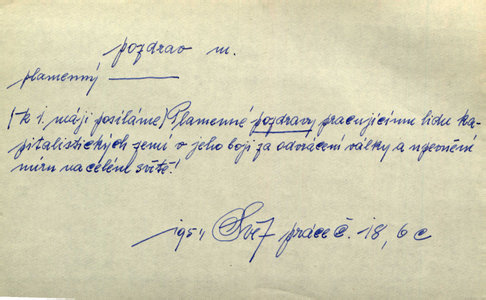 pozdrav m.
plamenný
(k 1. máji posíláme) Plamenné pozdravy pracujícímu lidu ka-
pitalistických zemí v jeho boji za odvrácení války a upevnění
míru na celém světě!
1954 práce č. 18, 6 c